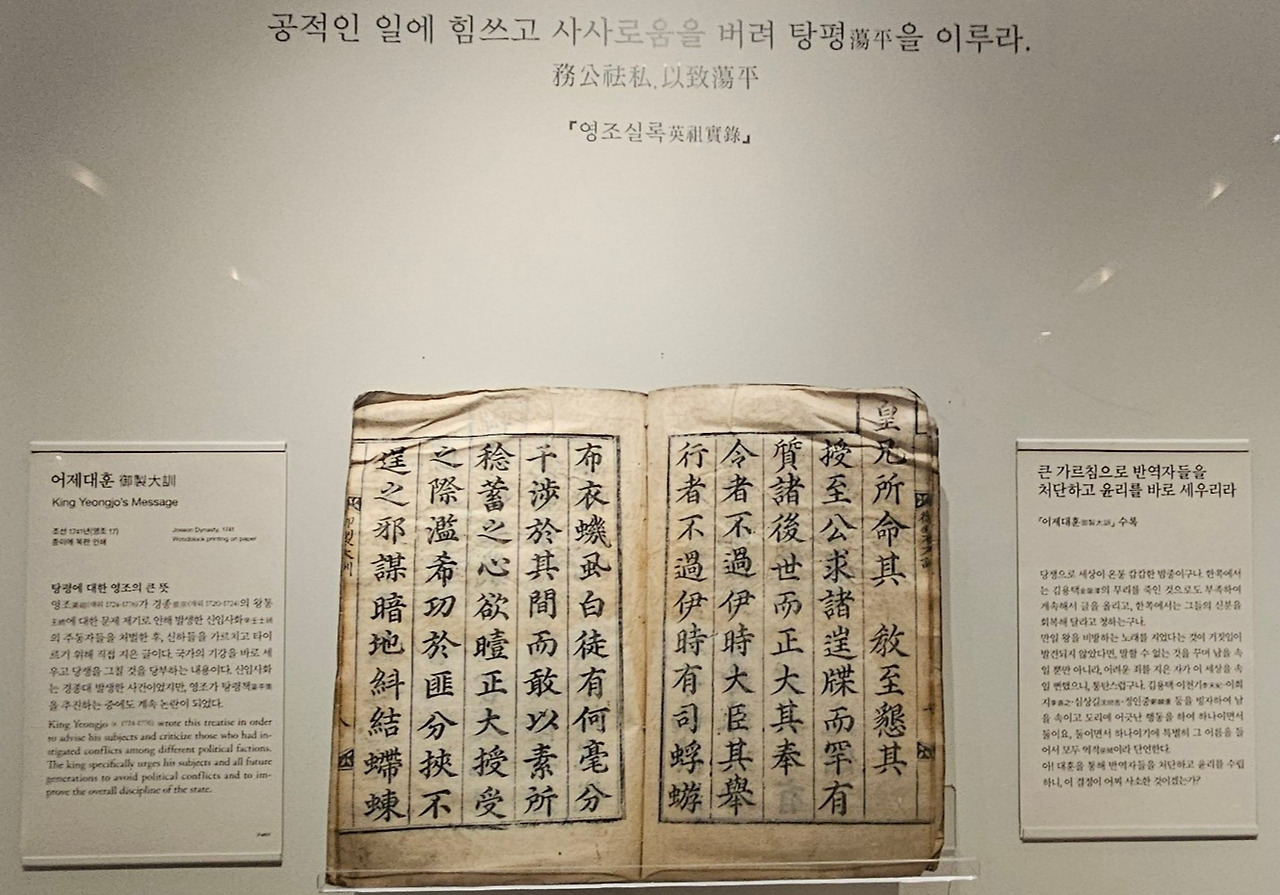 공적인 일에 힘쓰고 사사로움을 버려 탕평蕩平을 이루라.
務公祛私, 以致蕩平
『영조실록英祖實錄』
어제대훈 御製大訓
King Yeongjo's Message
조선 1741년(영조 17)
종이에 목판 인쇄
Joseon Dynasty, 1741
Woodblock printing on paper
탕평에 대한 영조의 큰 뜻
영조英祖(재위 1724-1776)가 경종景宗(재위 1720-1724)의 왕통
王統에 대한 문제 제기로 인해 발생한 신임사화辛壬士禍
의 주동자들을 처벌한 후, 신하들을 가르치고 타이
르기 위해 직접 지은 글이다. 국가의 기강을 바로 세
우고 당쟁을 그칠 것을 당부하는 내용이다. 신임사화
는 경종대 발생한 사건이었지만, 영조가 탕평책蕩平策
을 추진하는 중에도 계속 논란이 되었다.
King Yeongjo (r. 1724-1776) wrote this treatise in order
to advise his subjects and criticize those who had in-
stigated conflicts among different political factions.
The king specifically urges his subjects and all future
generations to avoid political conflicts and to im-
prove the overall discipline of the state.
皇兄所命其 敎至懇其
授至公求諸逞牒而罕有
質諸後世而正大其奉
令者不過伊時大臣其擧
行者不過伊時有司蜉蝣
布衣蟣虱白徒有何毫分
干涉於其間而敢以素所
稔蓄之心欲曀正大授受
之際濫希功於匪分挾不
逞之邪謀暗地糾結螮蝀
큰 가르침으로 반역자들을
처단하고 윤리를 바로 세우리라
『어제대훈御製大訓』 수록
당쟁으로 세상이 온통 캄캄한 밤중이구나. 한쪽에서
는 김용택金龍澤의 무리를 죽인 것으로도 부족하여
계속해서 글을 올리고, 한쪽에서는 그들의 신분을
회복해 달라고 청하는구나.
만일 왕을 비방하는 노래를 지었다는 것이 거짓임이
발견되지 않았다면, 말할 수 없는 것을 꾸며 남을 속
일 뿐만 아니라, 어려운 죄를 지은 자가 이 세상을 속
일 뻔했으니, 통탄스럽구나. 김용택·이천기李天紀·이희
지李喜之·심상길沈尙吉·정인중鄭麟重 등을 빙자하여 남
을 속이고 도리에 어긋난 행동을 하여 하나이면서
둘이요, 둘이면서 하나이기에 특별히 그 이름을 들
어서 모두 역적逆賊이라 단언한다.
아! 대훈을 통해 반역자들을 처단하고 윤리를 수립
하니, 이 결정이 어찌 사소한 것이겠는가?